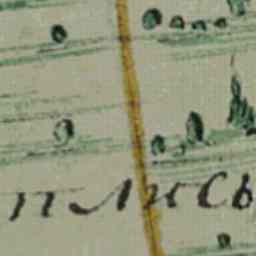 п лись